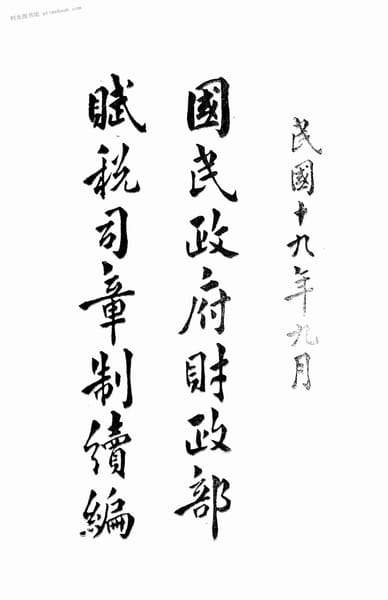 时光图书馆 xtimebook.com
民國十九年九月
國民政府財政部
賦税司章制續編